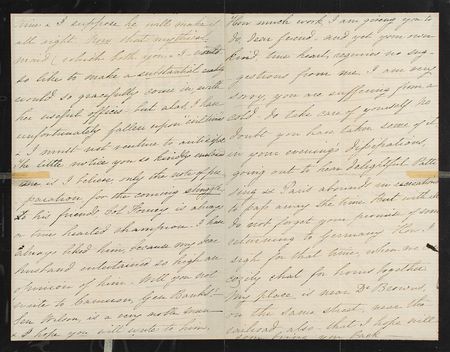 time & I suppose he will make it
all right. Now that mythical
maid (which both you & I would
so like to make a substantial reality
would so gracefully come in, with
her useful offices but alas I have
unfortunately fallen upon
I must not venture to anticipate
The little notice you so kindly
is I believe only the note of pre
paration for the coming struggle
to his friends Col Forney is always
a true hearted champion. I have
always liked him, because my dear
husband entertained so high an
opinion of him. Will you not
write to Cameron, Gen Banks?
Gen Wilson, is a very
& I hope you will write to him,
How much work I am giving you to
do, dear friend, and yet your own
kind, true heart, requires no sug-
gestions from me. I am very
sorry, you are suffering from a
cold, do take care of yourself. No
doubt you have taken some of it
in your evening's dissipations,
going out to hear delightful Patti
sing & Paris abounds in
to pass away the time. But with it
do not forget your promise of some
coming to Germany. How, I
sigh for that time, when we
cozily chat for hours together
My place, is near
on the same street, near the
railroad, also that I hope will
soon bring you back